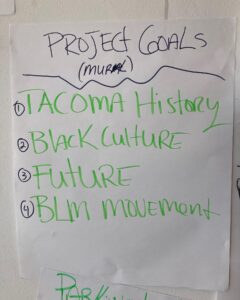 PROJECT GOALS
(MURAL)
① TACOMA HISTORY
② BLACK CULTURE
③ FUTURE
④ BLM MOVEMENT